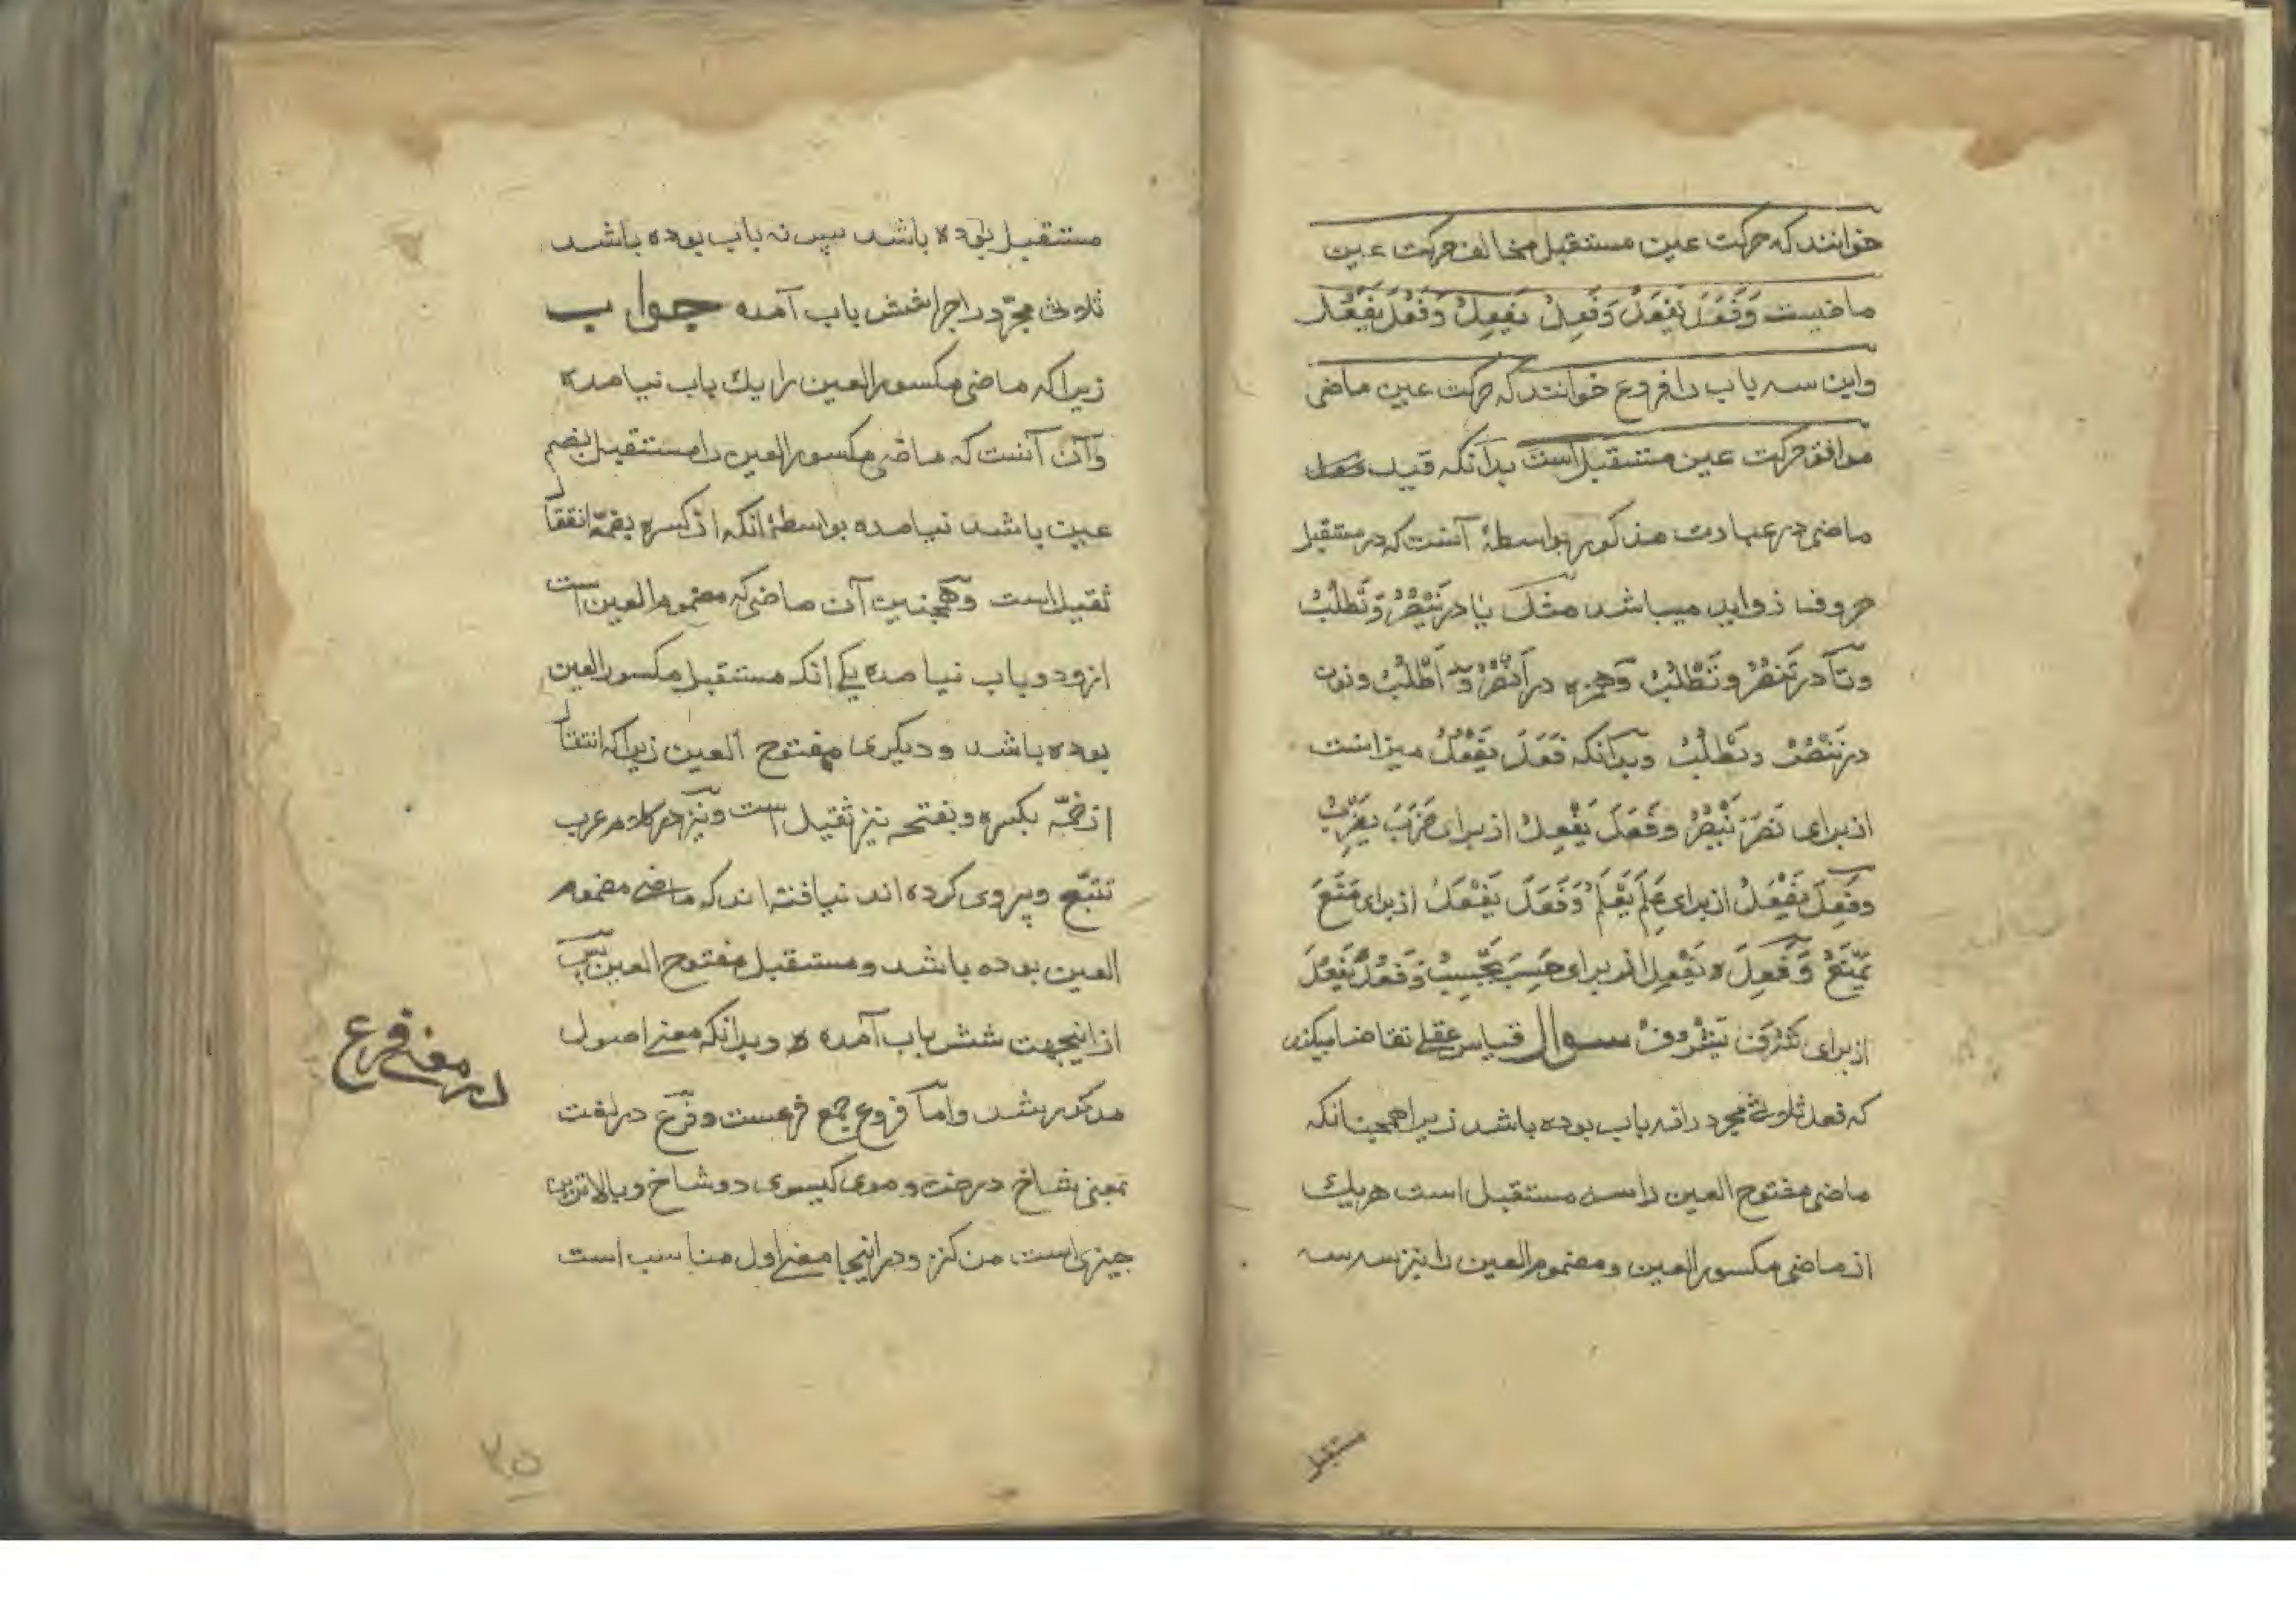 خوانند که حرکت عین مستقبل مخالف حرکت عین
ماضیست وَفَعَلَ یَفْعَلُ وَفَعِلَ یَفْعِلُ وَفَعُلَ یَفْعُلُ
واین سه باب را فروع خوانند که حرکت عین ماضی
موافق حرکت عین مستقبل است بدآنکه قید
ماضی در عبارت مذکور بواسطهٔ آنست که در مستقبل
حروف زواید میباشد مثل یا در یَنْصُرُ وَیَطْلُبُ
وتآ در تَنْصُرُ وتَطْلُبُ وهمزه در اَنْصُرُ وَ اَطْلُبُ ونون
در نَنْصُرُ ونَطْلُبُ وبدآنکه فَعَلَ یَفْعُلُ میزانست
از برای نَصَرَ یَنْصُرُ وفَعَلَ یَفْعِلُ از برای ضَرَبَ یَضْرِبُ
وفَعِلَ یَفْعَلُ از برای عَلِمَ یَعْلَمُ وَفَعَلَ یَفْعَلُ از برای مَنَعَ
یَمْنَعُ وَفَعِلَ یَفْعِلُ از برای حَسِبَ یَحْسِبُ وَفَعُلَ یَفْعُلُ
از برای شَرُفَ یَشْرُفُ سوال قیاس عقلی تقاضا میکند
که فعل ثلاثی مجرد را نه باب بوده باشد زیرا همچنانکه
ماضی مفتوح العین را سه مستقبل است هریک
از ماضی مکسور العین ومضموم العین را نیز سه سه
مستقبل
مستقبل بوده باشد پس نه باب بوده باشد
ثلاثی مجرّد را چرا شش باب آمده جواب
زیرا که ماضی مکسور العین را یک باب نیامده
وآن آنست که ماضی مکسور العین را مستقبل بضم
عین باشد نیامده بواسطهٔ انکه از کسره بضمّه انتقال
ثقیل است وهمچنین آن ماضی که مضموم العین است
ازو دو باب نیامده یکی انکه مستقبل مکسور العین
بوده باشد ودیگری مفتوح العین زیرا که انتقال
از ضمّه بکسره وبفتحه نیز ثقیل است ونیز در کلام عرب
تتبّع وپیروی کرده اند نیافته اند که ماضی مضموم
العین بوده باشد ومستقبل مفتوح العین پس
از اینجهت شش باب آمده وبدانکه معنی اصول
مذکور شد وامّا فروع جمع فرعست وفرع در لغت
بمعنی شاخ درخت وموی کیسوی دو شاخ وبالاترین
چیزی است من کنز ودر اینجا معنی اول مناسب است
در معنی فرع
۲۵